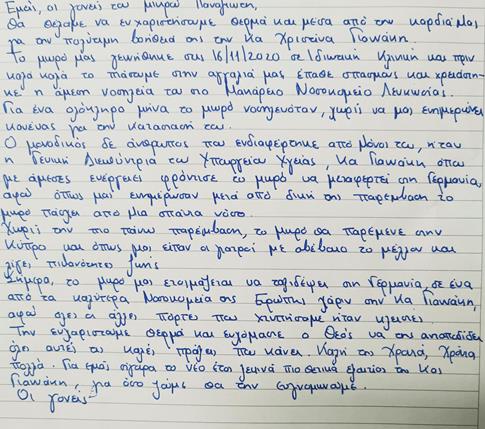 Εμείς, οι γονείς του μικρού Παναγιώτη,
Θα θέλαμε να ευχαριστήσουμε θερμά και μέσα από την καρδιά μας
για την πολύτιμη βοήθεια της την Κα Χριστίνα Γιαννάκη.
Το μωρό μας γεννήθηκε στις 16/11/2020 σε Ιδιωτική Κλινική και πριν
καλά καλά το πιάσουμε στην αγγαλιά μας έπαθε σπασμούς και χρειάστη-
κε η άμεση νοσηλεία του στο Μακάρειο Νοσοκομείο Λευκωσίας.
Για ένα ολόκληρο μήνα το μωρό νοσηλευόταν, χωρίς να μας ενημερώνει
κανένας για την κατάσταση του.
Ο μοναδικός δε άνθρωπος που ενδιαφέρθηκε από μόνος του, ήταν
η Γενική Διευθύντρια του Υπουργείου Υγείας, Κα Γιαννάκη, όπου
με άμεσες ενέργειες φρόντισε το μωρό να μεταφερτεί στη Γερμανία,
αφού όπως μας ενημέρωσαν μετά από δική της παρέμβαση το
μωρό πάσχει από μια σπάνια νόσο.
Χωρίς την πιο πάνω παρέμβαση, το μωρό θα παρέμενε στην
Κύπρο και όπως μας είπαν οι γιατροί με αβέβαιο το μέλλον και
λίγες πιθανότητες ζωής
Σήμερα, το μωρό μας ετοιμάζεται να ταξιδέψει στη Γερμανία, σε ένα
από τα καλύτερα Νοσοκομεία της Ευρώπης χάρις στην Κα Γιαννάκη,
αφού όλες οι άλλες πόρτες που χτυπήσαμε ήταν κλειστές.
Την ευχαριστούμε θερμά και ευχόμαστε ο Θεός να της ανταποδίδει
όλες αυτές τις καλές πράξεις που κάνει. Καλή της Χρονιά, Χρόνια
Πολλά. Για εμάς σίγουρα το νέο έτος ξεκινά πιο θετικά εξαιτίας της Κας
Γιαννάκη, για όσο ζούμε θα την ευγνωμονούμε.
Οι γονείς